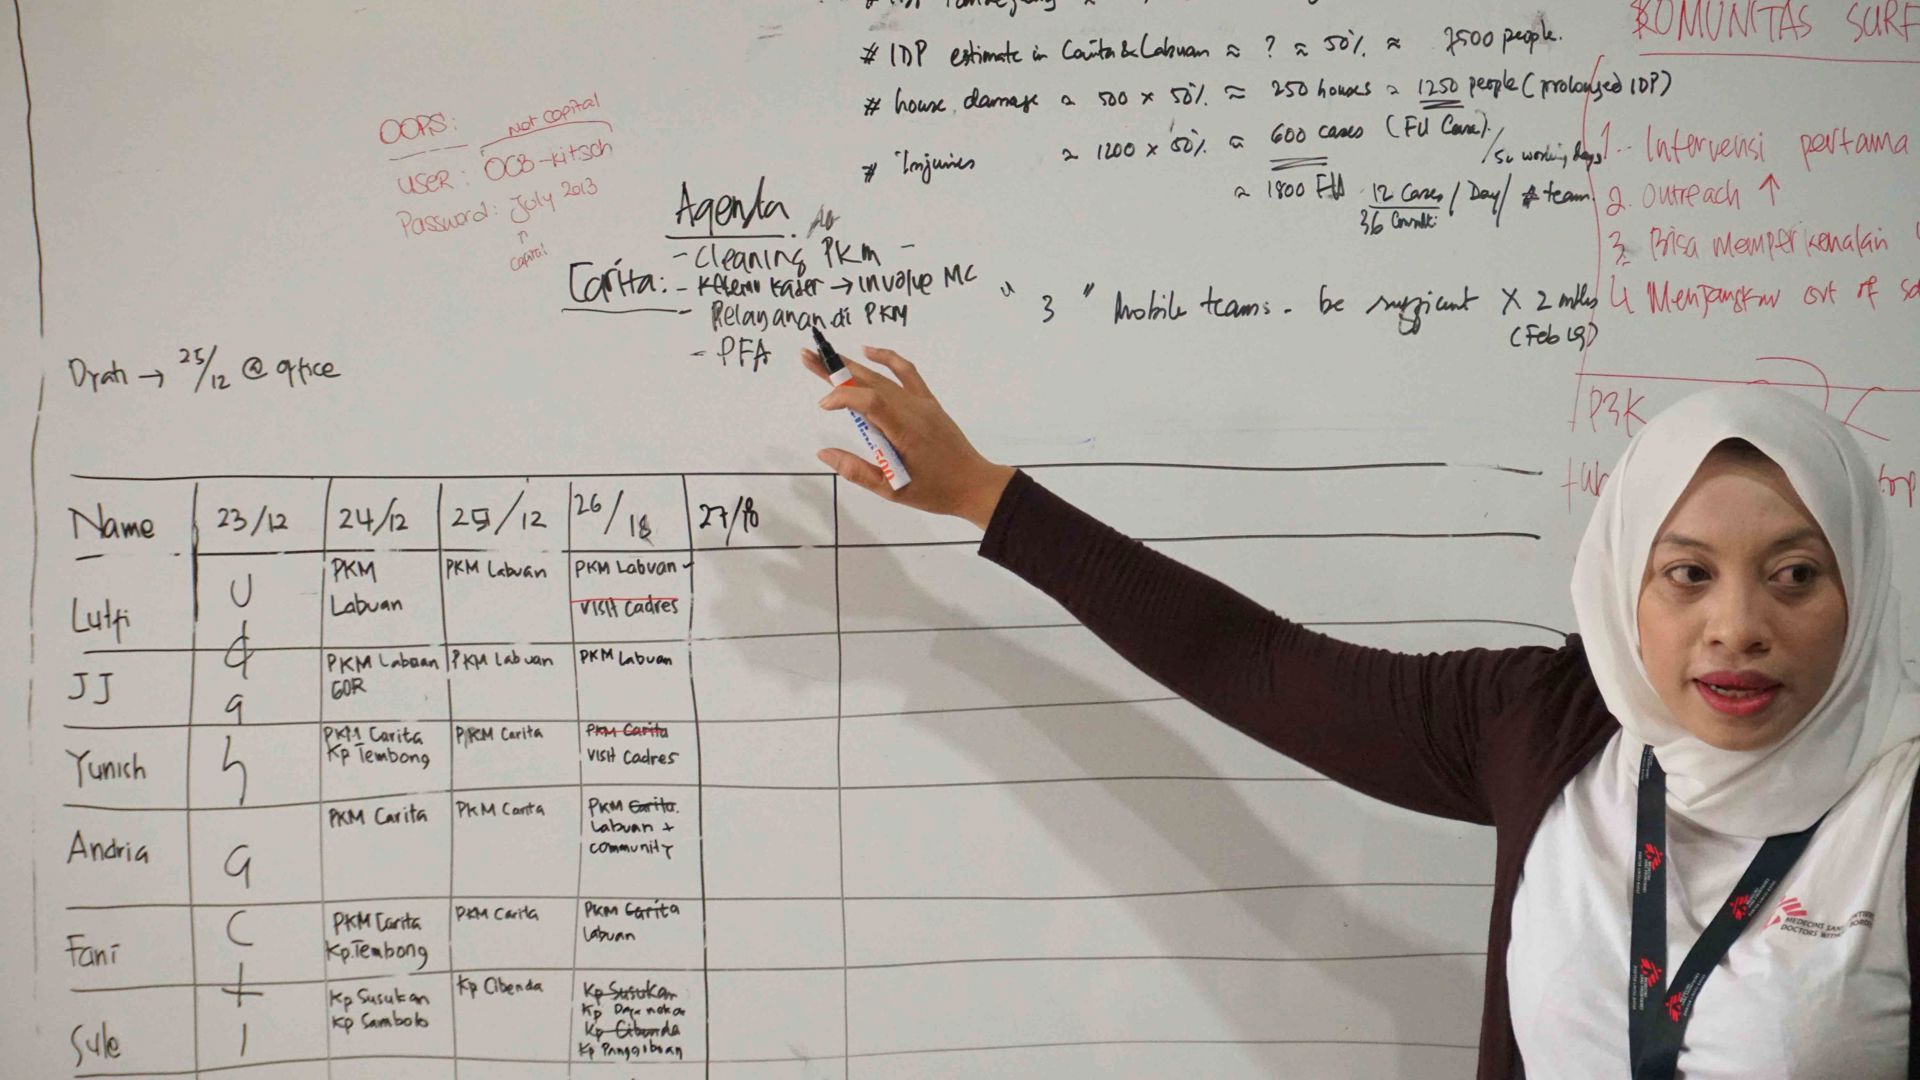 # IDP estimate in Carita & Labuan ≈ ? ≈ 50% ≈ 7500 people.
# house damage ≈ 500 x 50% ≈ 250 houses ≈ 1250 people (prolonged IDP)
# Injuries ≈ 1200 x 50% ≈ 600 cases (FU Care)
≈ 1800 FU 12 Cases / Day / # team
36 Consult:
OOPS:
Not capital
USER: OCB-kitsch
Password: July 2013
capital
Agenda
- Cleaning PKM -
Carita: - Ketemu kader → involve MC
- Pelayanan di PKM
- PFA
" 3 " Mobile teams - be sufficient X 2 mths
(Feb 19)
KOMUNITAS SURF
1. Intervensi pertama
2. Outreach ↑
3. Bisa memperkenalan
4. Menjangkau out of
P3K
Dyah → 25/12 @ office
Name 23/12 24/12 25/12 26/18 27/18
Lutfi PKM Labuan PKM Labuan PKM Labuan
Visit Cadres
JJ PKM Labuan GOR PKM Labuan PKM Labuan
Yunich PKM Carita Kp Tembong PKM Carita PKM Carita Visit Cadres
Andria PKM Carita PKM Carita PKM Carita. Labuan + community
Fani PKM Carita Kp.Tembong PKM Carita PKM Carita Labuan
Sule Kp Susukan Kp Sambolo Kp Cibenda Kp Susukan Kp Cibenda
MEDECINS SANS
DOCTORS WITH